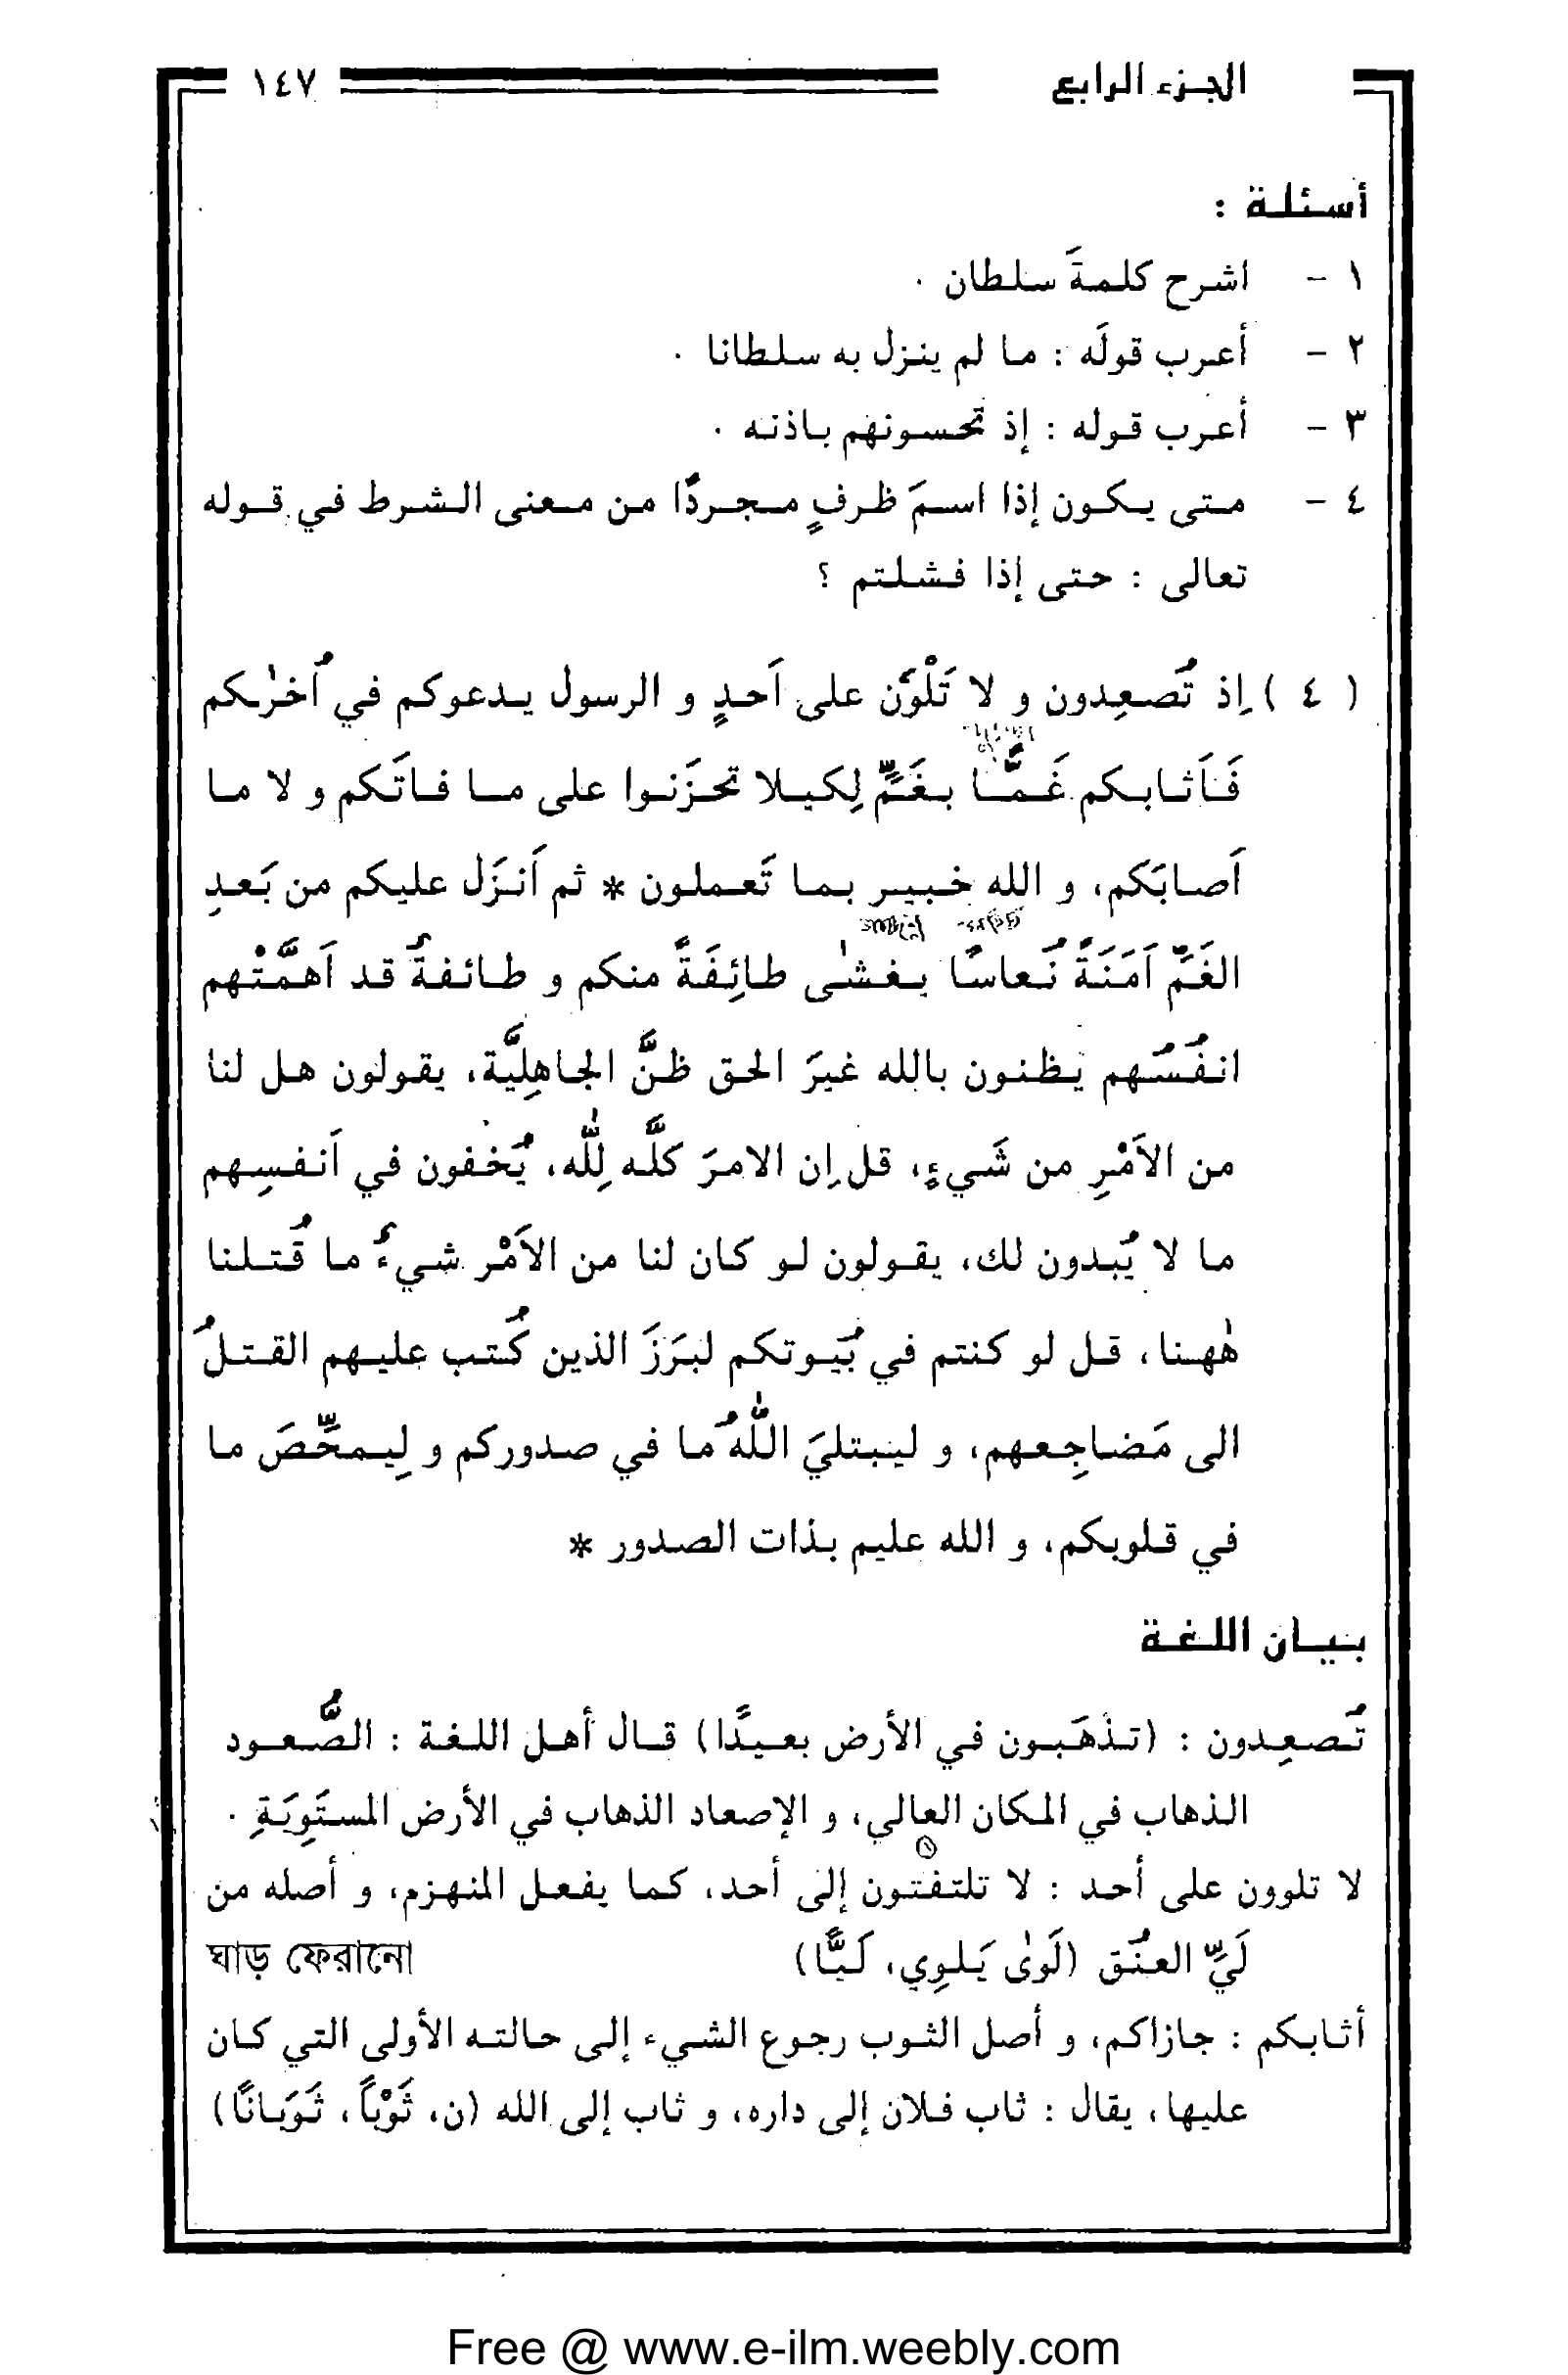 الجزء الرابع ١٤٧
أسئلة :
١ - اشرح كلمةَ سلطان .
٢ - أعرب قولَه : ما لم ينزل به سلطانا .
٣ - أعرب قوله : إذ تحسونهم باذنه .
٤ - متى يكون إذا اسمَ ظرفٍ مجردًا من معنى الشرط في قوله
تعالى : حتى إذا فشلتم ؟
( ٤ ) اِذ تُصعِدون و لا تَلْوٗن على اَحدٍ و الرسول يدعوكم في اُخرٰكم
فَاَثابكم غَمًّا بغَمٍّ لِكيلا تحزَنوا على ما فاتَكم و لا ما
اَصابَكم، و الله خبير بما تَعملون * ثم اَنزَل عليكم من بَعدِ
الغَمِّ اَمَنَةً نُعاسًا يغشٰى طائِفَةً منكم و طائفةٌ قد اَهمَّتْهم
انفُسُهم يَظنون بالله غيرَ الحق ظنَّ الجاهِلِيَّة، يقولون هل لنا
من الاَمْرِ من شَيءٍ، قل اِن الامرَ كلَّه لِلّٰه، يُخفون في اَنفسِهم
ما لا يُبدون لك، يقولون لو كان لنا من الاَمْر شيءٌ ما قُتلنا
هٰهنا، قل لو كنتم في بُيوتكم لبرَزَ الذين كُتب عليهم القتلُ
الى مَضاجِعهم، و ليبتليَ اللّٰهُ ما في صدوركم و لِيمحِّصَ ما
في قلوبكم، و الله عليم بذات الصدور *
بيان اللغة
تُصعِدون : (تذهَبون في الأرض بعيدًا) قال أهل اللغة : الصُّعود
الذهاب في المكان العالي، و الإصعاد الذهاب في الأرض المستَوِيَةِ .
لا تلوون على أحد : لا تلتفتون إلى أحد، كما يفعل المنهزم، و أصله من
لَيِّ العنُق (لَوٰى يَلوِي، لَيًّا) ঘাড় ফেরানো
أثابكم : جازاكم، و أصل الثوب رجوع الشيء إلى حالته الأولى التي كان
عليها، يقال : ثاب فلان إلى داره، و ثاب إلى الله (ن، ثَوْباً، ثَوَبانًا)
Free @ www.e-ilm.weebly.com